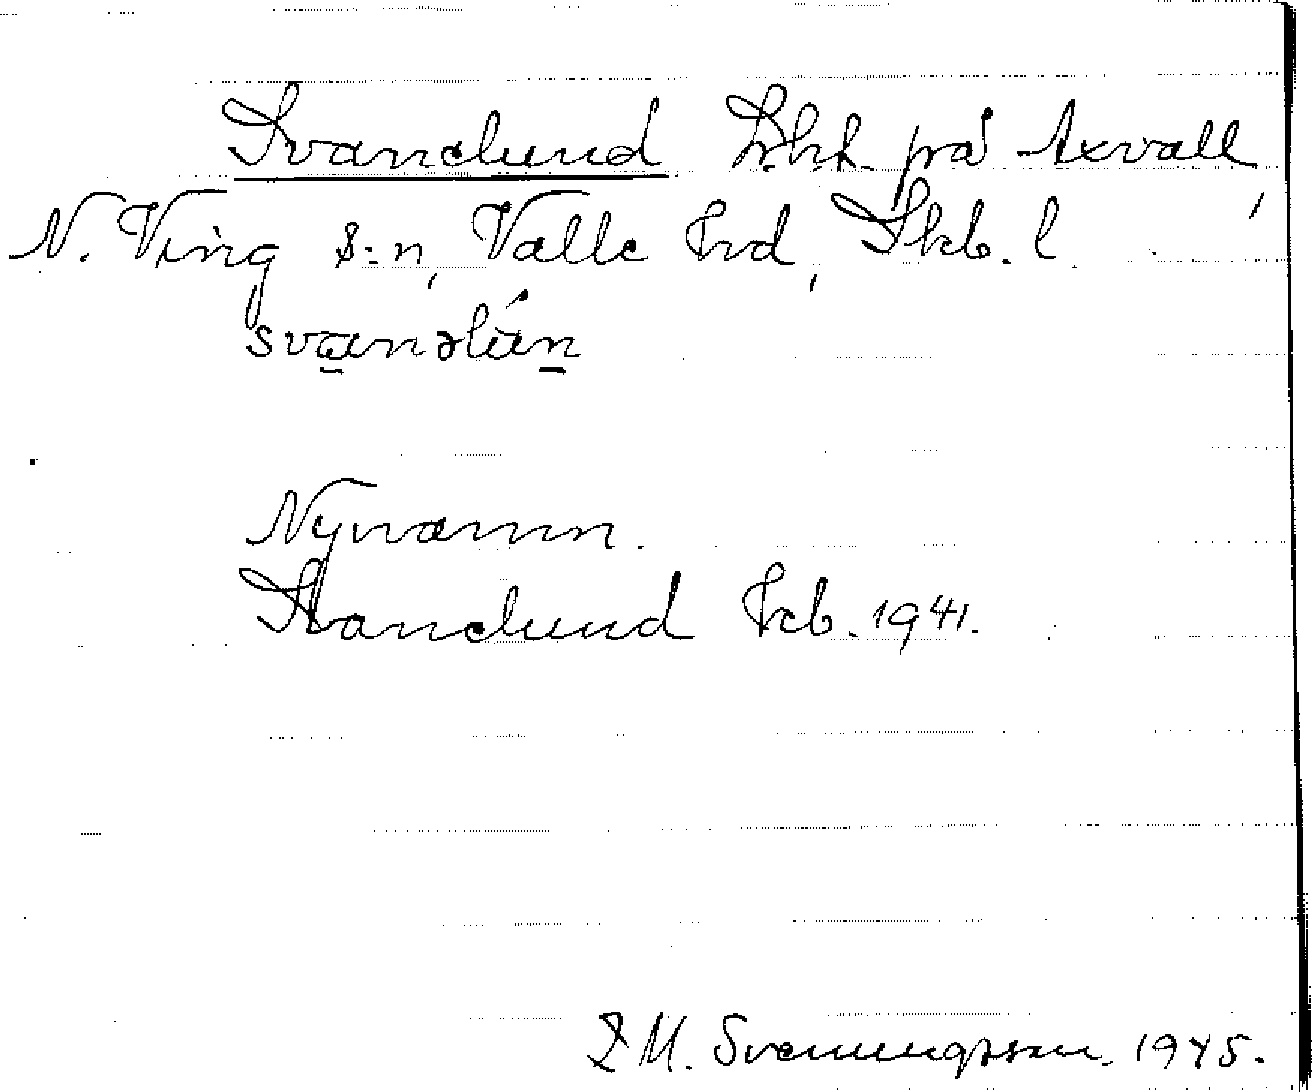 Svanelund Lht. på Axvall,
N. Ving s:n, Valle hd, Skb. l.
svanəlún
Nynamn.
Svanelund Fcb. 1941.
M. Svenningsson. 1945.